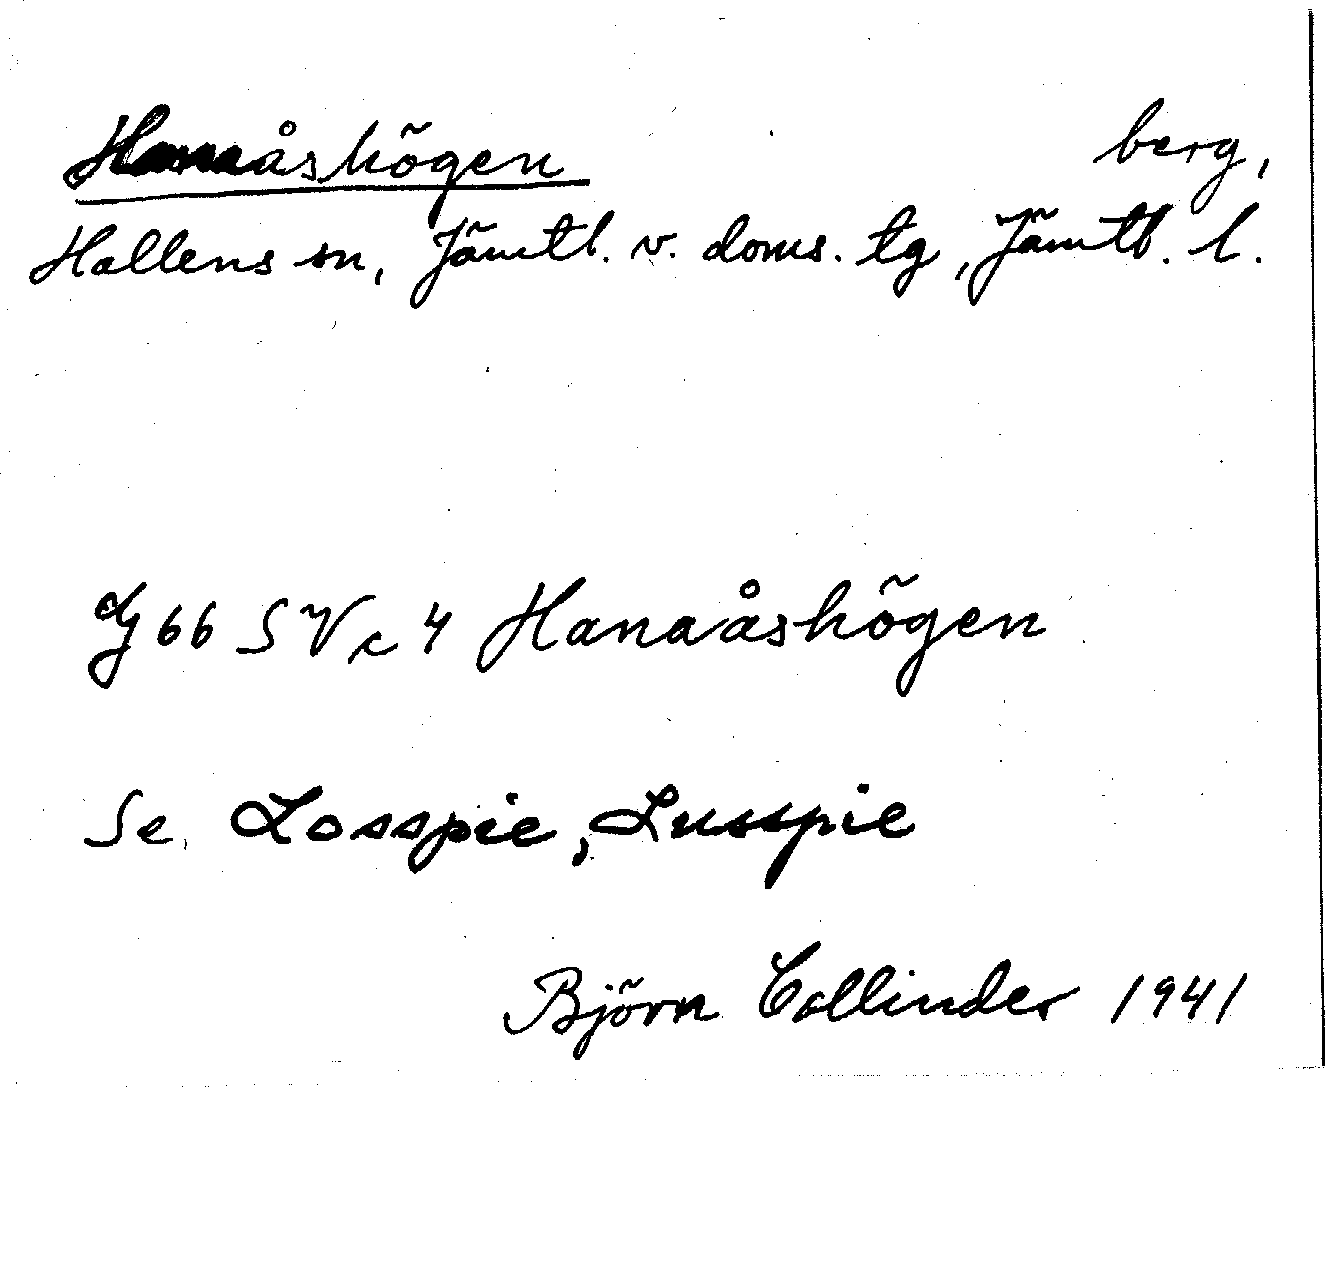 Hanaåshögen berg,
Hallens sn, Jämtl. v. doms. tg, Jämtl. l.
g 66 SVc4 Hanaåshögen
Se Losspie, Lusspie
Björn Collinder 1941